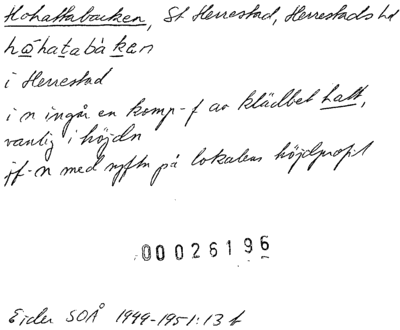 Hohattabacken, St Herrestad, Herrestads hd
hȯhatabàkan
i Herrestad
i n ingår en komp-f av klädbet hatt,
vanlig i höjdn
jf-n med syftn på lokalens höjdprofil
00026196
Ejder SOÅ 1949-1951:13 f